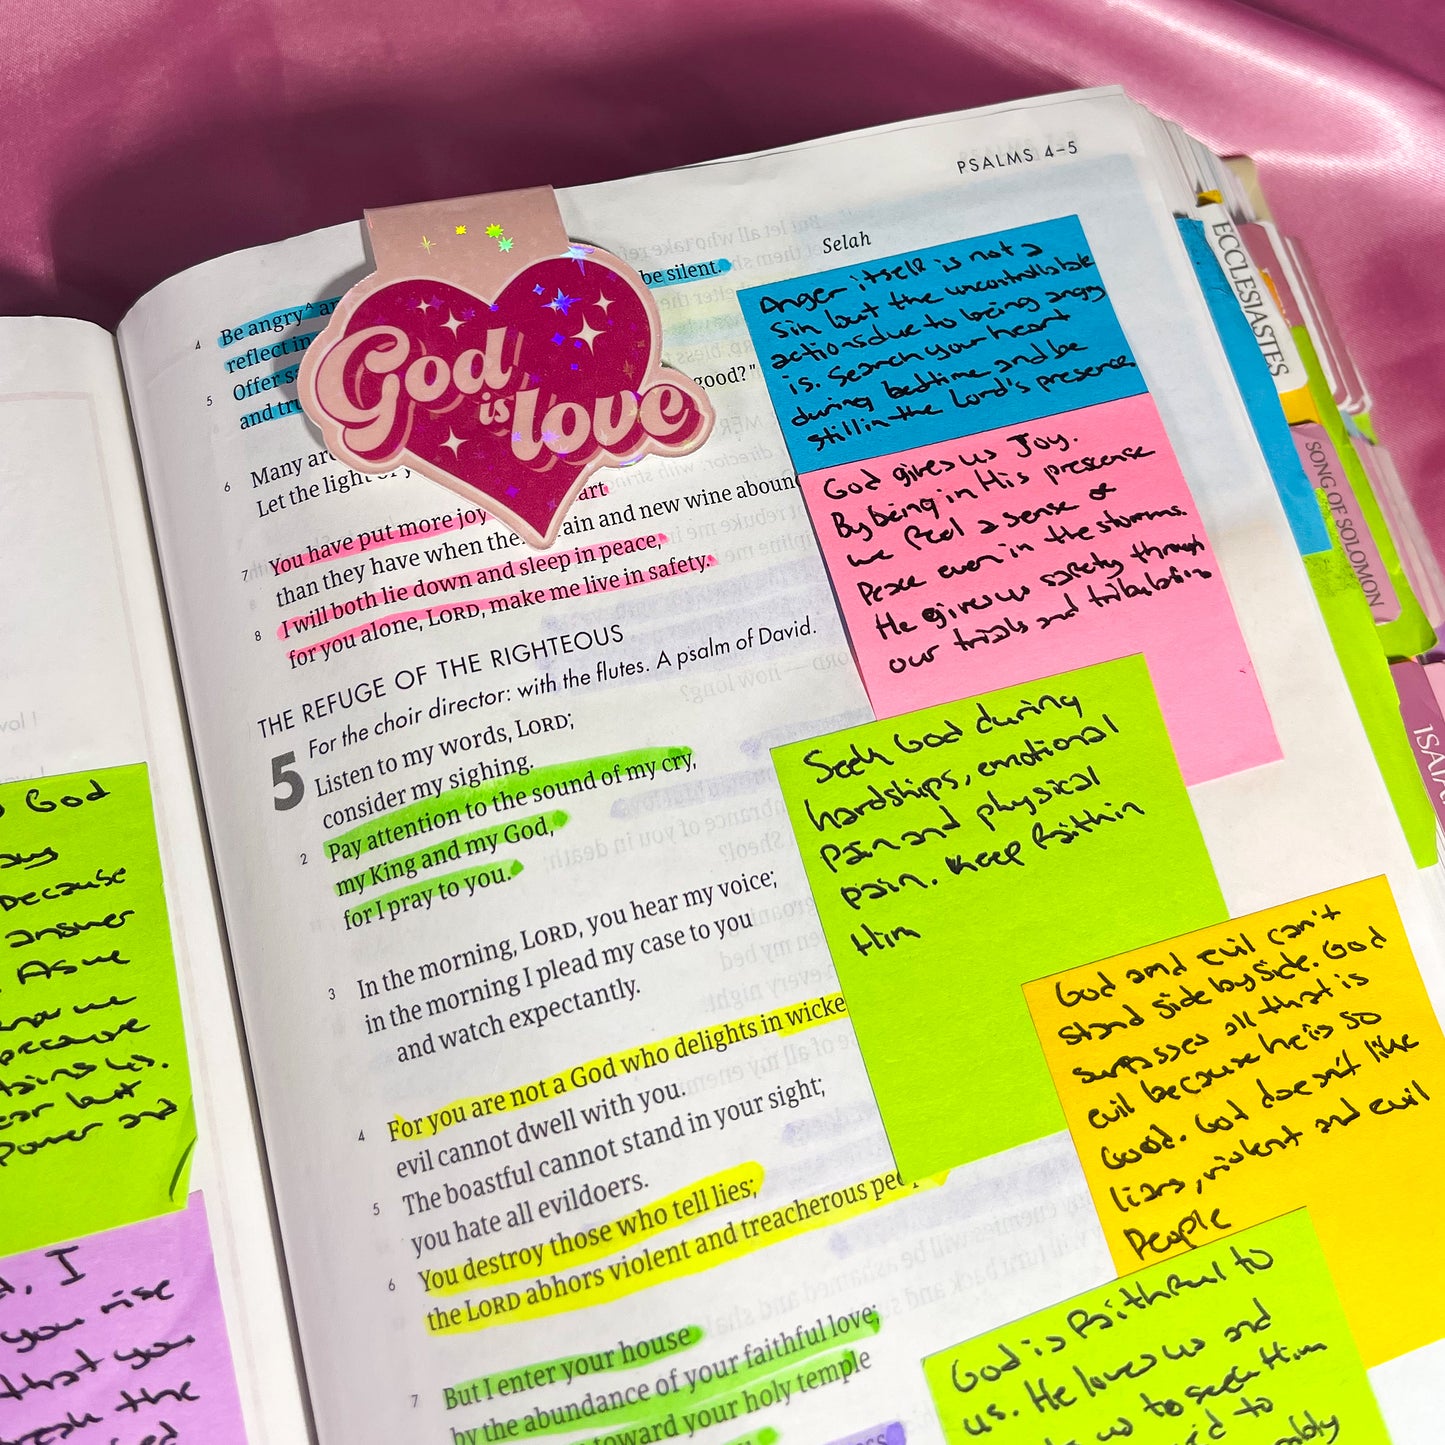 PSALMS 4–5
Selah
4 Be angry A be silent.
reflect in
5 Offer
and
good?"
6 Many
Let the light
7 You have put more joy
than they have when and new wine
8 I will both lie down and sleep in peace,
for you alone, LORD, make me live in safety.
THE REFUGE OF THE RIGHTEOUS
For the choir director: with the flutes. A psalm of David.
5 Listen to my words, LORD;
consider my sighing.
2 Pay attention to the sound of my cry,
my King and my God,
for I pray to you.
3 In the morning, LORD, you hear my voice;
in the morning I plead my case to you
and watch expectantly.
4 For you are not a God who delights in
evil cannot dwell with you.
5 The boastful cannot stand in your sight;
you hate all evildoers.
6 You destroy those who tell lies;
the LORD abhors violent and treacherous
7 But I enter your house
by the abundance of your faithful love;
toward your holy temple
God
is love
Anger itself is not a
sin but the uncontrollable
actions due to being angry
is. Search your heart
during bedtime and be
still in the Lord's presence.
God gives us Joy.
By being in His presense
we feel a sense of
Peace even in the storms.
He gives us safety through
our trials and tribulation
Seek God during
hardships, emotional
pain and physical
pain. Keep faith in
Him
God and evil can't
stand side by side. God
surpasses all that is
evil because he is so
Good. God doesn't like
liars, violent and evil
People
God is faithful to
us. He loves us and
us to seek Him
to
God
Because
answer
because
but
Power and
I
you rise
that you
the
ECCLESIASTES
SONG OF SOLOMON